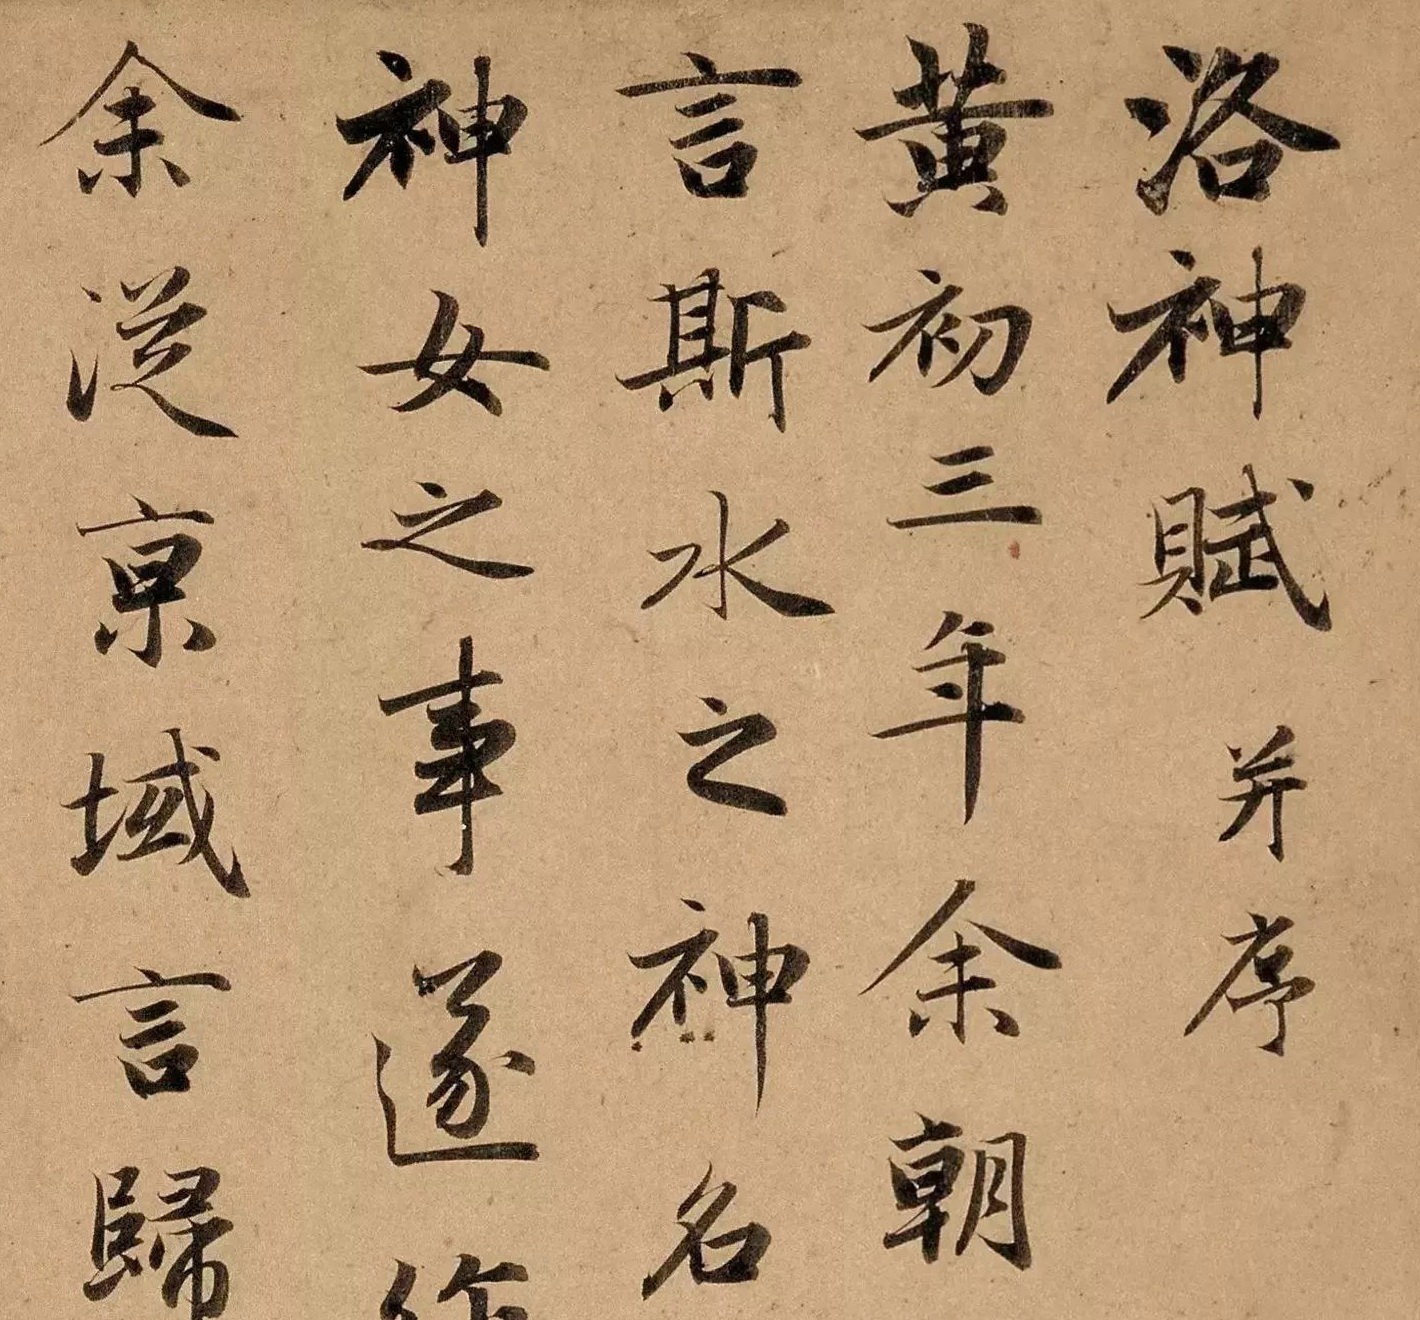 洛神賦并序
黃初三年余朝
言斯水之神名
神女之事遂作
余從京域言歸